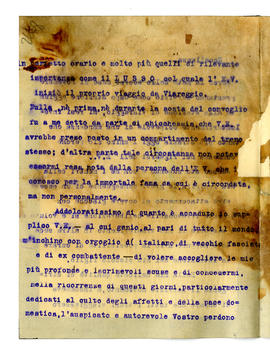 in perfetto orario e molto più quelli di rilevante
importanza come il L U S S O col quale l' E.V.
iniziò il proprio viaggio da Viareggio.
Nulla, nè prima, nè durante la sosta del convoglio
fu a me detto da parte di chicchessia, che V.E.
avrebbe preso posto in un compartimento del treno
stesso; d'altra parte tale circostanza non poteva
essermi resa nota dalla persona dell'E.V. che i
conosco per la immortale fama da cui è circondata,
ma non personalmente.
Addoloratissimo di quanto è accaduto io sup-
plico V.E. - al cui genio, al pari di tutto il mondo,
m'inchino con orgoglio d'italiano, di vecchio fascista
e di ex combattente - di volere accogliere le mie
più profonde e lacrimevoli scuse e di concedermi,
nella ricorrenza di questi giorni, particolarmente
dedicati al culto degli affetti e della pace do-
mestica, l'auspicato e autorevole Vostro perdono